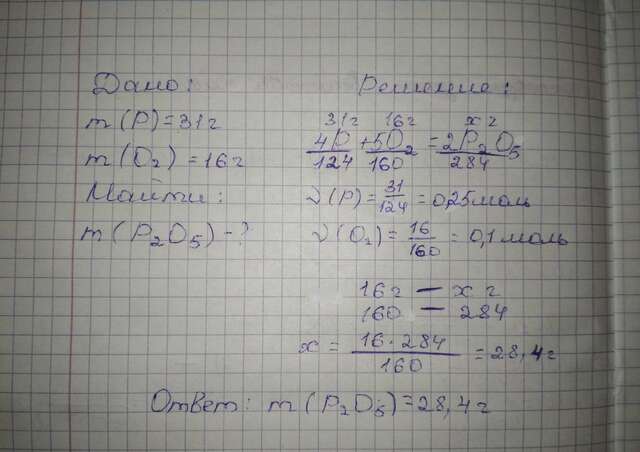 Дано:
m(P)=31г
m(O₂)=16г
Найти:
m(P₂O₅)-?
Решение:
31г 16г x г
4P+5O₂=2P₂O₅
124 160 284
ν(P)=31/124=0,25моль
ν(O₂)=16/160=0,1моль
16г — x г
160 — 284
x = 16·284/160 =28,4г
Ответ: m(P₂O₅)=28,4г